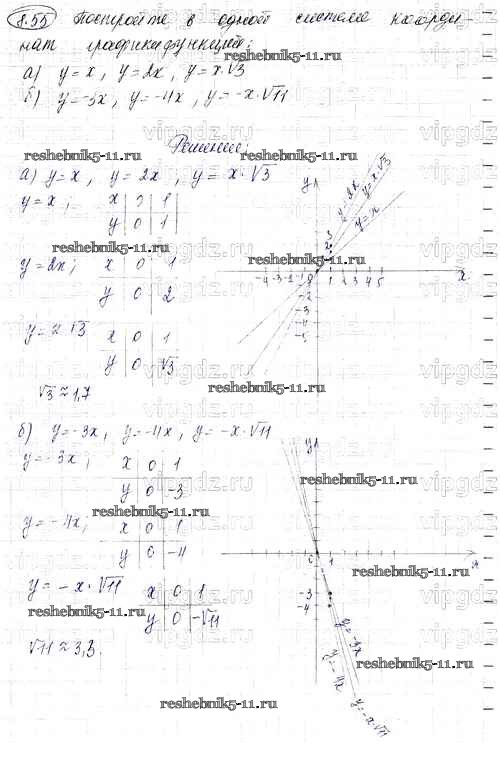 8.55 Постройте в одной системе координат графики функций:
а) y=x, y=2x, y=x·√3
б) y=-3x, y=-4x, y=-x·√11
reshebnik5-11.ru
Решение:
reshebnik5-11.ru
а) y=x, y=2x, y=x·√3
y=x; x 0 1
y 0 1
reshebnik5-11.ru
y=2x; x 0 1
y 0 2
y=x√3 x 0 1
y 0 √3
√3≈1,7
y
y=2x
y=x√3
y=x
3
2
-4 -3 -2 -1 0 1 2 3 4 5 x
-2
-3
-4
-5
reshebnik5-11.ru
reshebnik5-11.ru
reshebnik5-11.ru
б) y=-3x, y=-4x, y=-x·√11
y=-3x; x 0 1
y 0 -3
reshebnik5-11.ru
y=-4x; x 0 1
y 0 -4
y=-x·√11 x 0 1
y 0 -√11
reshebnik5-11.ru
√11≈3,3.
y
reshebnik5-11.ru
0 1
reshebnik5-11.ru
-3
-4
y=-3x
y=-4x
y=-x·√11
reshebnik5-11.ru
reshebnik5-11.ru
vipgdz.ru